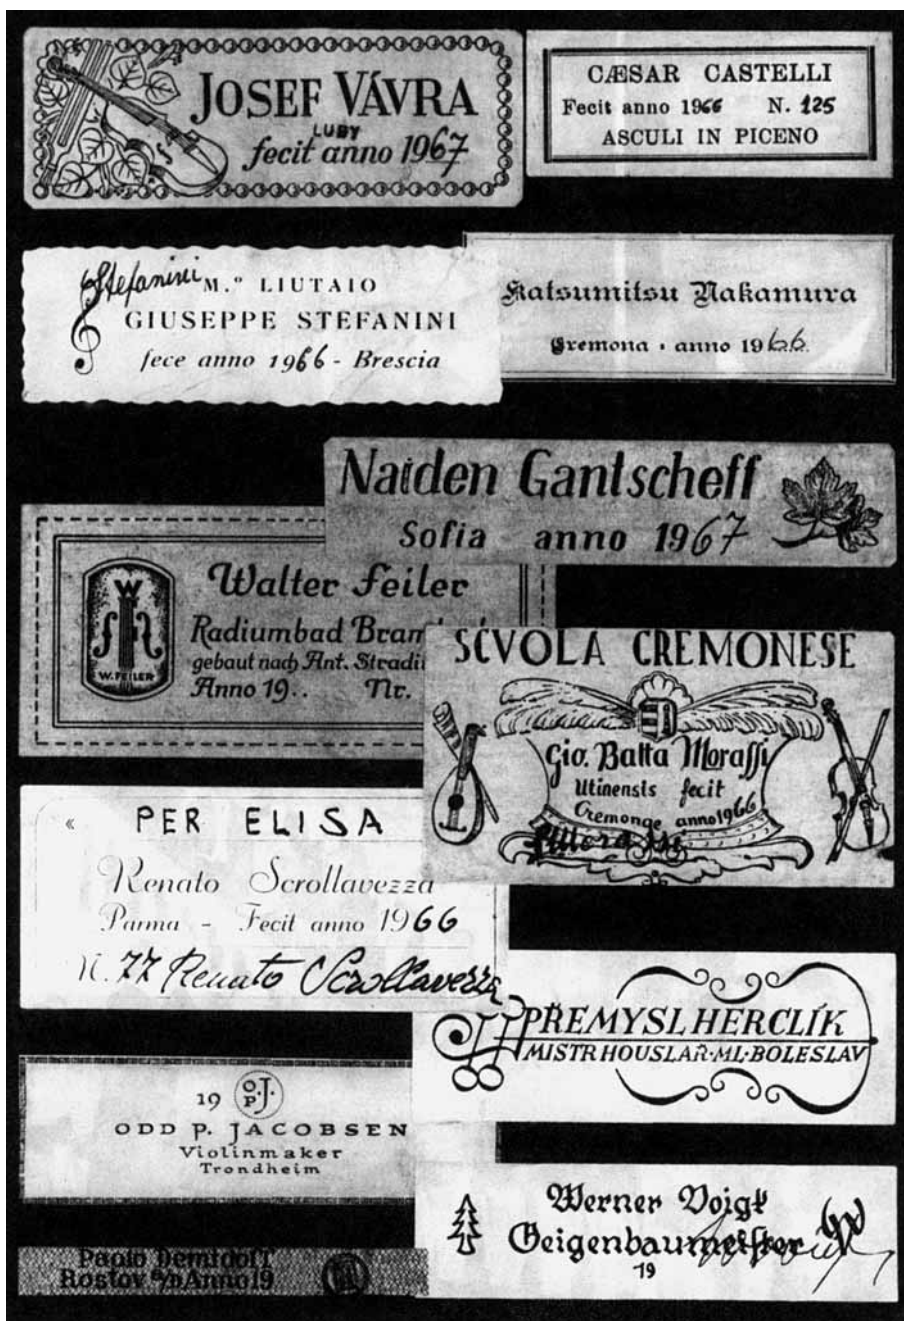 JOSEF VÁVRA
LUBY
fecit anno 1967
CÆSAR CASTELLI
Fecit anno 1966 N. 125
ASCULI IN PICENO
Stefanini
M.º LIUTAIO
GIUSEPPE STEFANINI
fece anno 1966 - Brescia
Katsumitsu Nakamura
Cremona • anno 1966.
Naiden Gantscheff
Sofia anno 1967
W
W. FEILER
Walter Feiler
Radiumbad Bram
gebaut nach Ant. Stradi
Anno 19.. Nr.
SCVOLA CREMONESE
Gio. Batta Morassi
Utinensis fecit
Cremonæ anno 1966
GBMorassi
PER ELISA
Renato Scrollavezza
Parma - Fecit anno 1966
N. 77 Renato Scrollavezza
PŘEMYSL HERCLÍK
MISTR HOUSLAŘ·ML·BOLESLAV
19 O.P.J.
ODD P. JACOBSEN
Violinmaker
Trondheim
Werner Voigt
Geigenbaumeister
19
Paolo Demidoff
Rostov a/D Anno 19